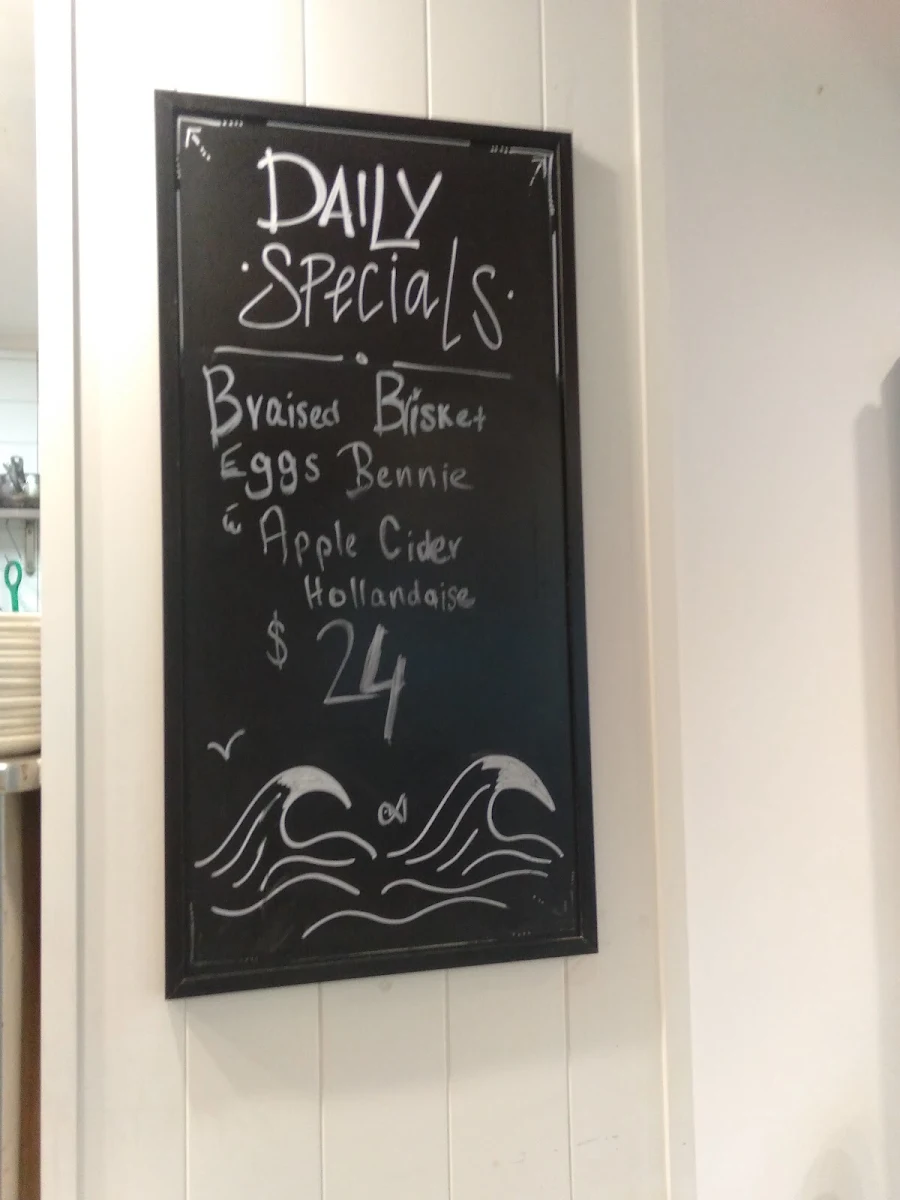 DAILY
SPeciaLS
Braised Brisket
Eggs Bennie
& Apple Cider
Hollandaise
$ 24